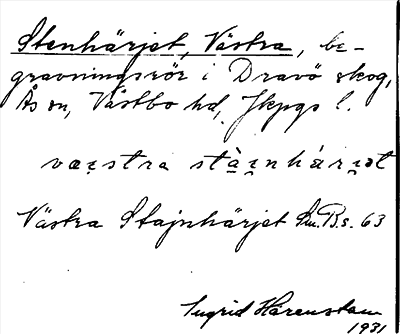 Stenhärjet, Västra, be-
gravningsrör i Dravö skog,
Ås sn, Västbo hd, Jkpgs l.
væstra stὰi̯nhár i̯ət
Västra Stajnhärjet Sm.B.s. 63
Ingrid Härenstam
1931